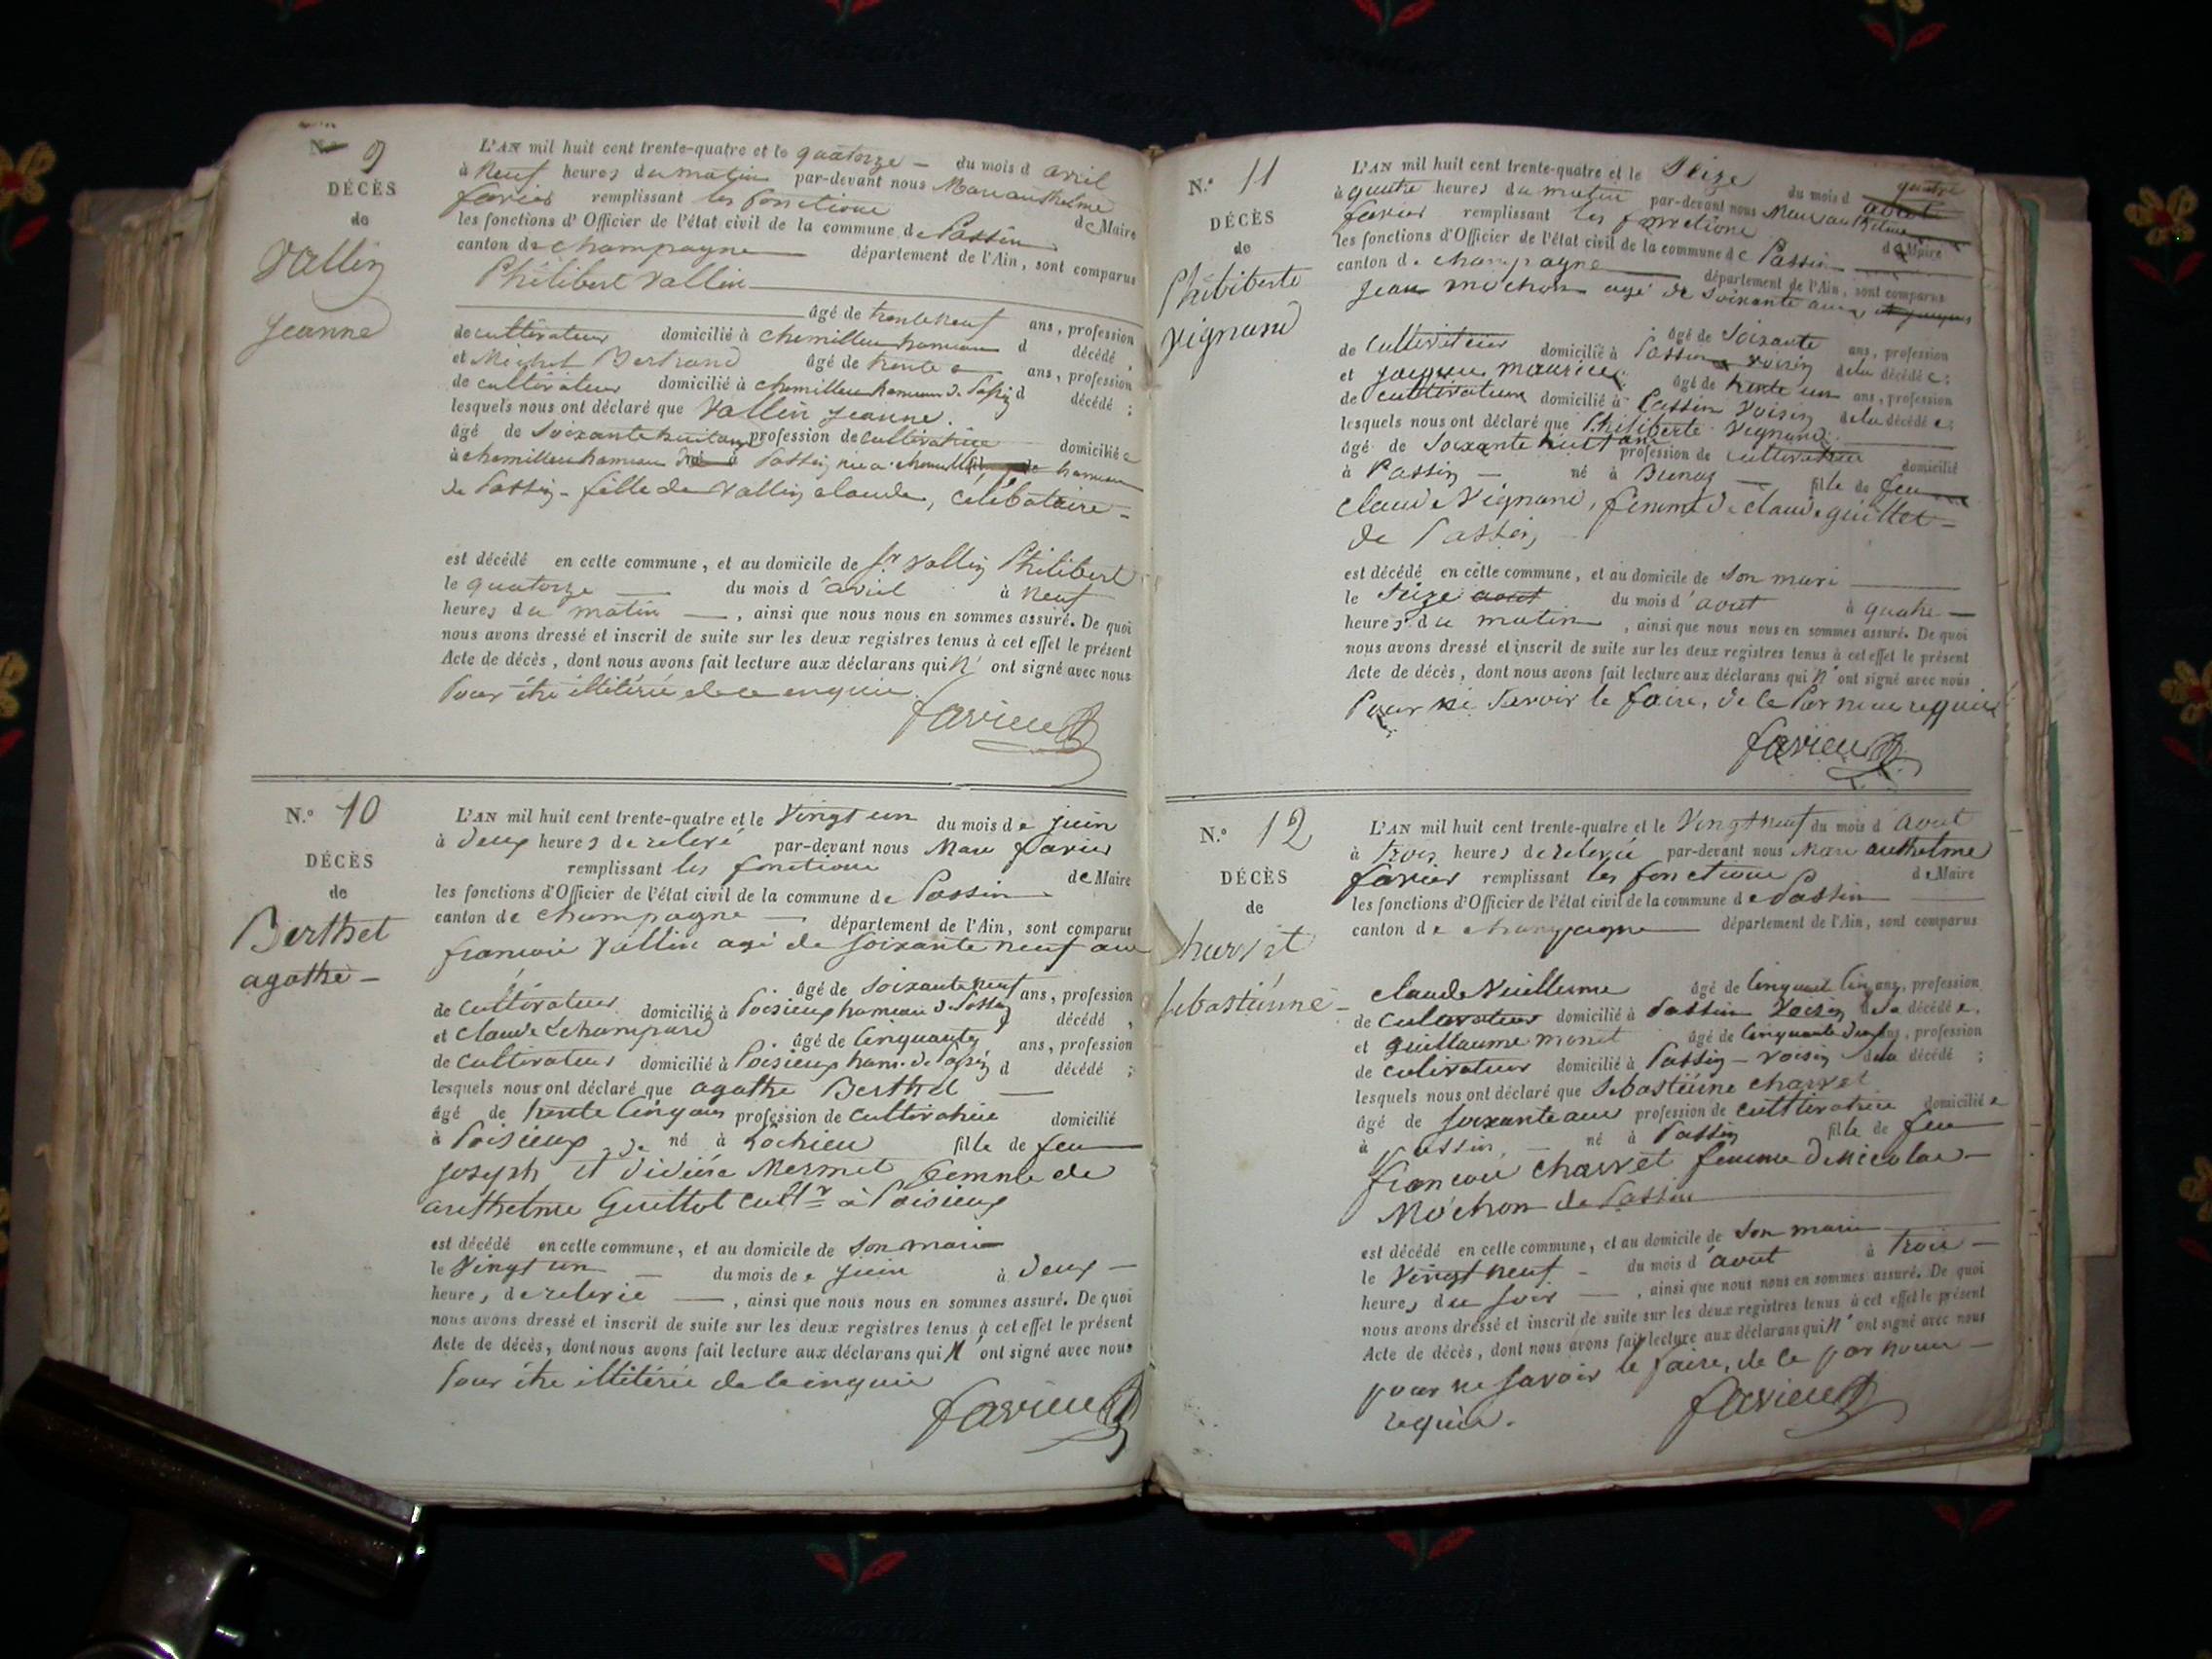 N.° 9
DÉCÈS
de
Vallin
Jeanne
L'AN mil huit cent trente-quatre et le quatorze du mois d avril
à Neuf heures du matin par-devant nous Marc anthelme
favier remplissant les fonctions de Maire
les fonctions d'Officier de l'état civil de la commune de Passin
canton de champagne département de l'Ain, sont comparus
Philibert Vallin
âgé de trente neuf ans, profession
de cultivateur domicilié à chemilleu hameau d décédé ,
et Bertrand âgé de trente ans, profession
de cultivateur domicilié à chemilleu hameau de Passin d décédé ;
lesquels nous ont déclaré que Vallin Jeanne.
âgé de Soixante huit ans profession de cultivatrice domicilié e
à chemilleu hameau de Passin née a hameau
de Passin - fille de Vallin claude, celibataire -
est décédé en cette commune, et au domicile de Sr Vallin Philibert
le quatorze du mois d'avril à neuf
heures du matin , ainsi que nous nous en sommes assuré. De quoi
nous avons dressé et inscrit de suite sur les deux registres tenus à cet effet le présent
Acte de décès, dont nous avons fait lecture aux déclarans qui N' ont signé avec nous
Pour être illitérés de ce enquis.
favier
N.° 10
DÉCÈS
de
Berthet
agathe -
L'AN mil huit cent trente-quatre et le Vingt un du mois de juin
à deux heures de relevé par-devant nous Marc favier
remplissant les fonctions de Maire
les fonctions d'Officier de l'état civil de la commune de Passin
canton de champagne département de l'Ain, sont comparus
francois Vallin agé de soixante neuf ans
âgé de soixante neuf ans, profession
de cultivateur domicilié à Poisieux hameau de Passin décédé ,
et Claude Lchampard âgé de Cinquante ans, profession
de cultivateur domicilié à Poisieux ham. de Passin d décédé ;
lesquels nous ont déclaré que agathe Berthet
âgé de trente Cinq ans profession de Cultivatrice domicilié
à Poisieux né à Lochieu fille de feu
joseph et Mermet femme de
anthelme Guillot cultr à Poisieux
est décédé en cette commune, et au domicile de son mari
le Vingt un du mois de juin à deux
heures de relevée , ainsi que nous nous en sommes assuré. De quoi
nous avons dressé et inscrit de suite sur les deux registres tenus à cet effet le présent
Acte de décès, dont nous avons fait lecture aux déclarans qui N' ont signé avec nous
Pour être illitérés de ce enquis
favier
N.° 11
DÉCÈS
de
Philiberte
Vignand
L'AN mil huit cent trente-quatre et le Seize du mois d aout
à quatre heures du matin par-devant nous Marc anthelme
favier remplissant les fonctions de Maire
les fonctions d'Officier de l'état civil de la commune de Passin
canton de champagne département de l'Ain, sont comparus
Jean mochon agé de soixante ans
âgé de Soixante ans, profession
de Cultivateur domicilié à Passin voisin de la décédé e ;
et jacques maurice âgé de trente un ans, profession
de cultivateur domicilié à Passin voisin de la décédé e ;
lesquels nous ont déclaré que Philiberte Vignand
âgé de Soixante huit ans profession de cultivatrice domicilié
à Passin né à Brenaz fille de feu
claude Vignand, femme de claude guillet
de Passin
est décédé en cette commune, et au domicile de son mari
le seize aout du mois d'aout à quatre
heures du matin , ainsi que nous nous en sommes assuré. De quoi
nous avons dressé et inscrit de suite sur les deux registres tenus à cet effet le présent
Acte de décès, dont nous avons fait lecture aux déclarans qui N' ont signé avec nous
Pour ne savoir le faire, de ce Par nous requis
favier
N.° 12
DÉCÈS
de
Charvet
Sebastienne
L'AN mil huit cent trente-quatre et le Vingt neuf du mois d Aout
à trois heures de relevée par-devant nous Marc anthelme
favier remplissant les fonctions de Maire
les fonctions d'Officier de l'état civil de la commune de Passin
canton de champagne département de l'Ain, sont comparus
claude Vuillerme âgé de Cinquante Cinq ans, profession
de Cultivateur domicilié à Passin Voisin de la décédé e,
et guillaume monet âgé de Cinquante deux ans, profession
de cultivateur domicilié à Passin - voisin de la décédé ;
lesquels nous ont déclaré que Sebastienne charvet
âgé de soixante ans profession de cultivatrice domicilié e
à passin né à Passin fille de feu
francois charvet femme de nicolas
Mochon de Passin
est décédé en cette commune, et au domicile de son mari
le Vingt neuf du mois d'aout à trois
heures du soir , ainsi que nous nous en sommes assuré. De quoi
nous avons dressé et inscrit de suite sur les deux registres tenus à cet effet le présent
Acte de décès, dont nous avons fait lecture aux déclarans qui N' ont signé avec nous
pour ne savoir le faire, de ce par nous
requis.
favier